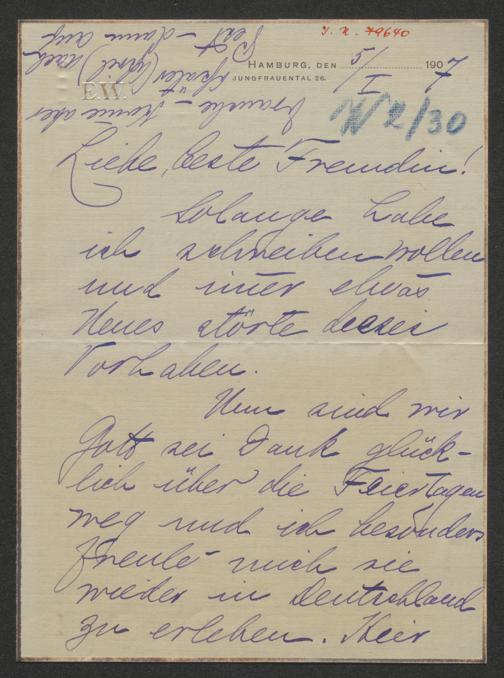 J. N. 79640
HAMBURG, DEN 5/I 1907
JUNGFRAUENTAL 26.
E.W.
W 2/30
Liebe, beste Freundin!
Solange habe
ich schreiben wollen
und im̅er etwas
Neues störte dieses
Vorhaben.
Nun sind wir
Gott sei Dank glück-
lich über die Feiertagen
weg und ich besonders
freute mich sie
wieder in Deutschland
zu erleben. Hier